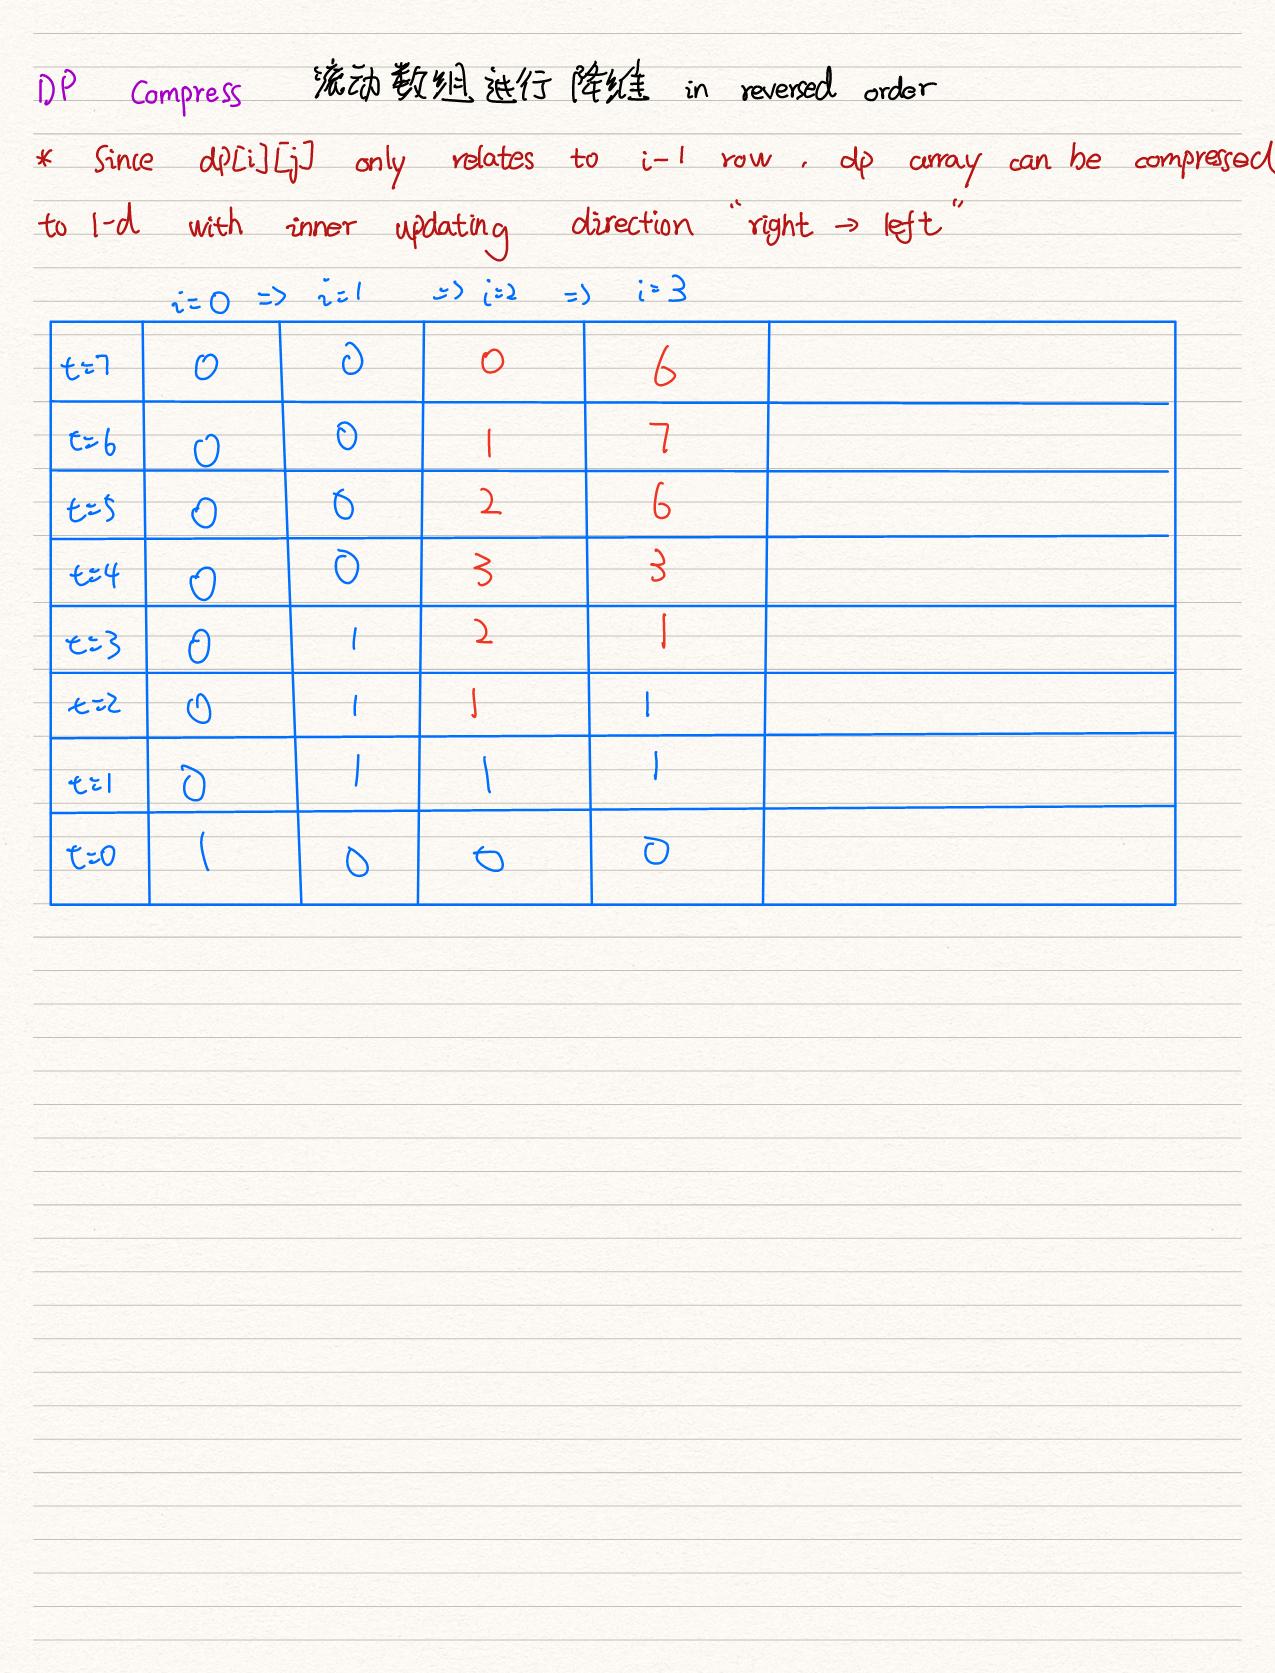 DP Compress 流动数组进行降维 in reversed order
* Since dp[i][j] only relates to i-1 row. dp array can be compressed
to 1-d with inner updating direction "right → left"
i=0 => i=1 => i=2 => i=3
t=7 0 0 0 6
t=6 0 0 1 7
t=5 0 0 2 6
t=4 0 0 3 3
t=3 0 1 2 1
t=2 0 1 1 1
t=1 0 1 1 1
t=0 1 0 0 0